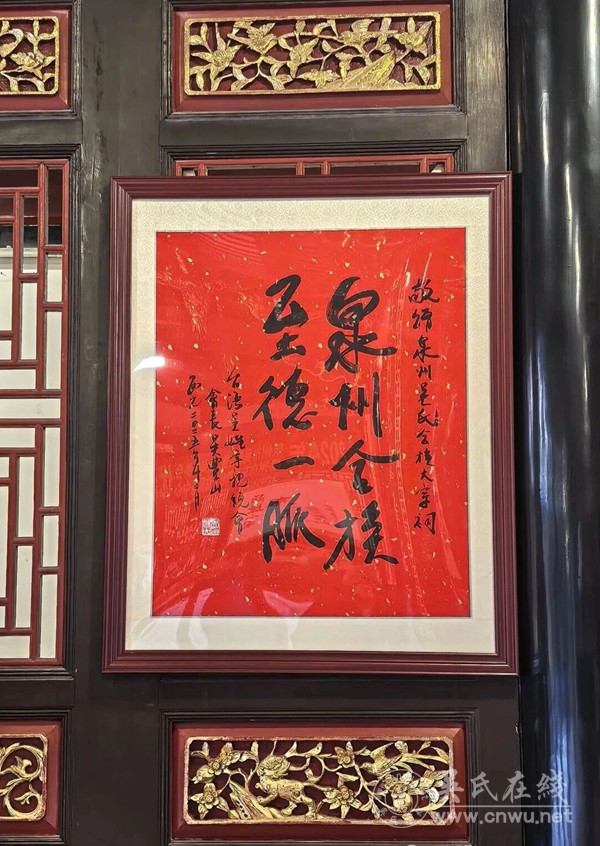 敬頌泉州吳氏合族大宗祠
泉州合族
至德一脈
台灣吳姓宗親總會
會長吳豐山
西元二〇二五年月
吴氏在线
www.cnwu.net